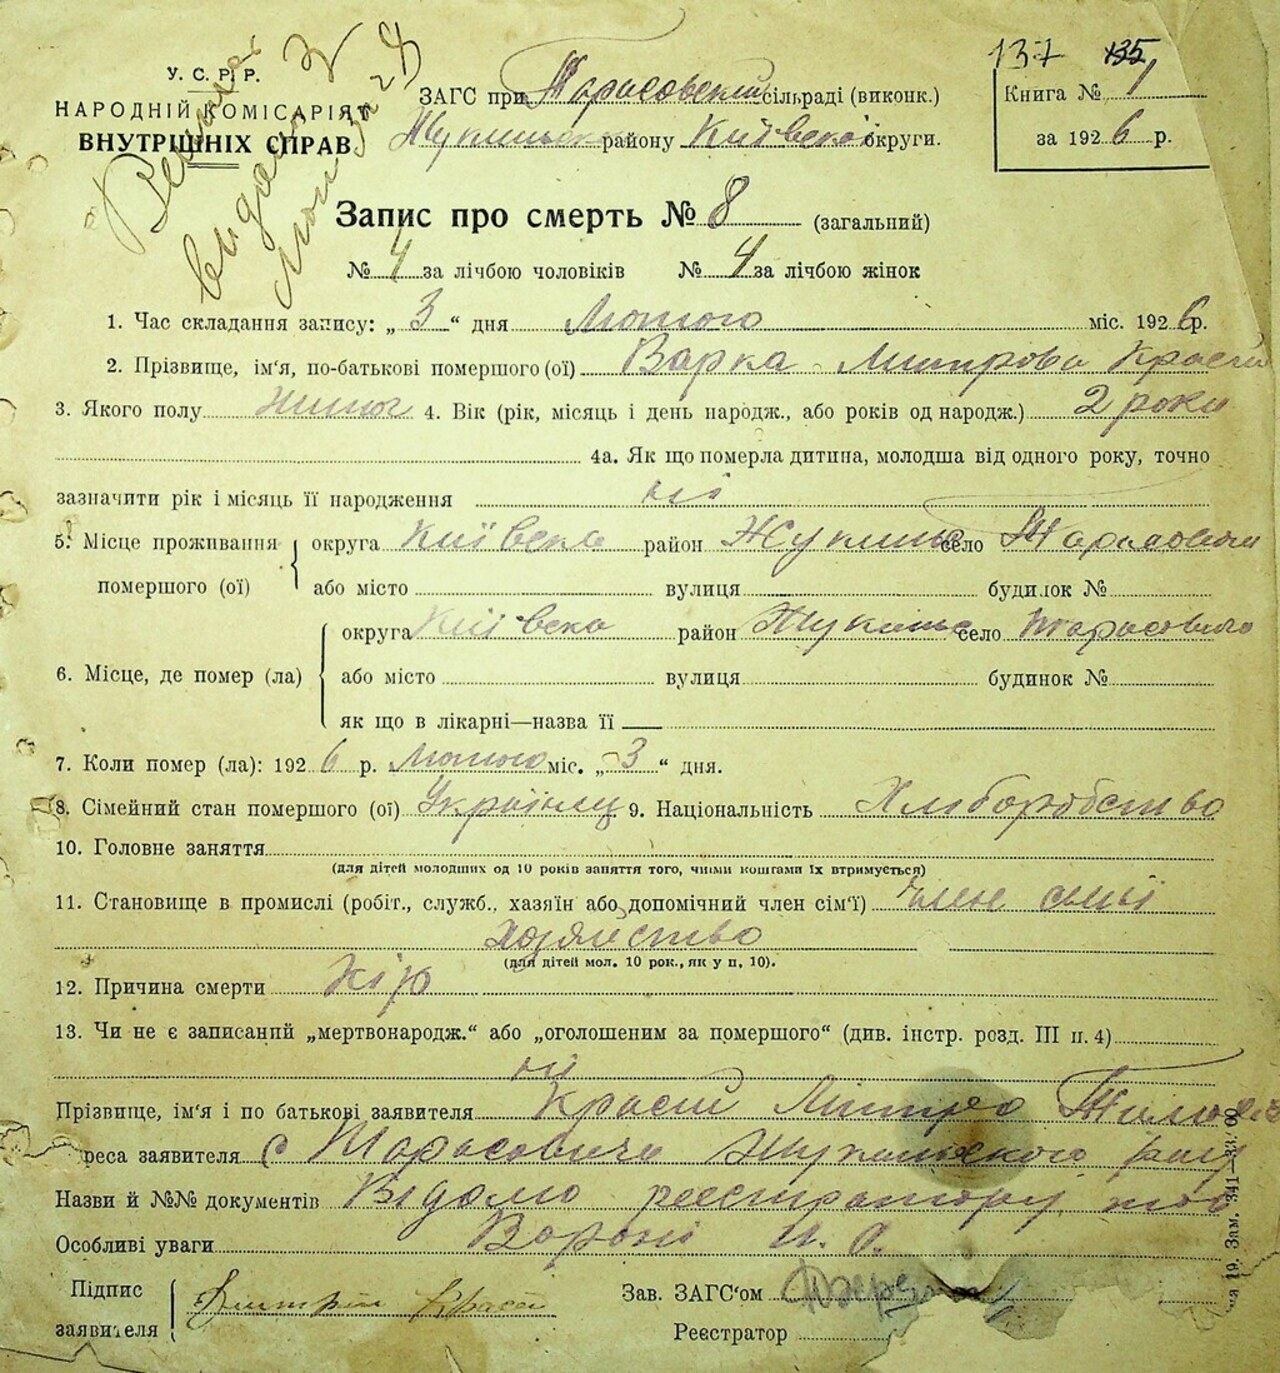 137 135
У. С. Р. Р.
НАРОДНІЙ КОМІСАРІЯТ
ВНУТРІШНІХ СПРАВ.
ЗАГС при Тарасовский сільраді (виконк.)
району Київської округи.
Книга № 1
за 1926 р.
Запис про смерть № 8 (загальний)
№ 4 за лічбою чоловіків № 4 за лічбою жінок
1. Час складання запису: „ 3 “ дня Лютого міс. 1926 р.
2. Прізвище, ім'я, по-батькові помершого (ої) Варка Митрова Красій
3. Якого полу жіноч 4. Вік (рік, місяць і день народж., або років од народж.) 2 роки
4а. Як що померла дитина, молодша від одного року, точно
зазначити рік і місяць її народження ні
5. Місце проживання помершого (ої) округа Київска район Жукинсь село
або місто вулиця будинок №
6. Місце, де помер (ла) округа Київска район Жукинс село
або місто вулиця будинок №
як що в лікарні—назва її
7. Коли помер (ла): 1926 р. Лютого міс. „ 3 “ дня.
8. Сімейний стан помершого (ої) Україньц 9. Національність Хліборобство
10. Головне заняття
(для дітей молодших од 10 років заняття того, чиїми коштами їх втримується)
11. Становище в промислі (робіт., служб., хазяїн або допомічний член сім'ї) член сімї
Хозяйство
(для дітей мол. 10 рок., як у п, 10).
12. Причина смерти Кір
13. Чи не є записаний „мертвонародж.“ або „оголошеним за помершого“ (див. інстр. розд. III п. 4)
ні
Прізвище, ім'я і по батькові заявителя Красій Митро
реса заявителя с Тарасовичи Жукинського рай
Назви й №№ документів Відомо реєстратору, тов
Особливі уваги Вороні И. О.
Підпис заявителя Дмитрій Красій
Зав. ЗАГС'ом
Реєстратор
19. Зам. 341—33. 00